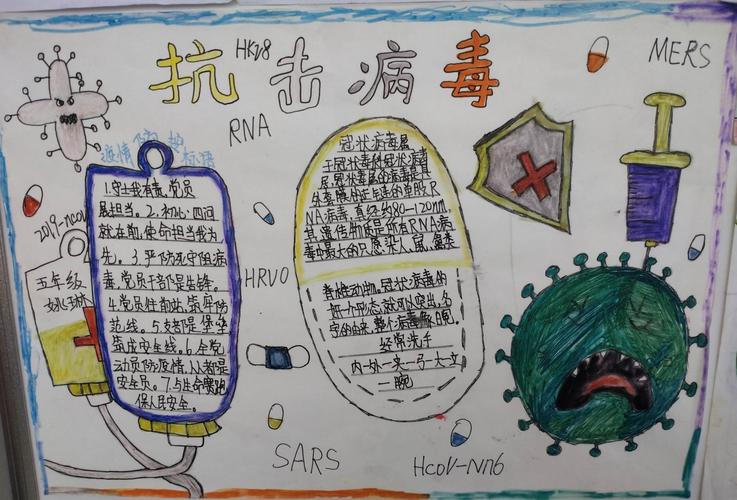 抗击病毒
HK48
RNA
MERS
疫情防护
标语
1.守土我有责,党员
展担当。2.初心四问
就在前,使命担当我为
先。3.严防死守阻病
毒,党员干部是先锋。
4.党员住前站,筑牢防
范线。5.
筑成安全线。6.全党
动员防疫情,人人都是
安全员。7.与生命赛跑
保人民安全。
2019-ncov
五年级
冠状病毒属
于冠状病毒科冠状病毒
属,冠状病毒属的病毒是具
外套膜的正链单股R
NA病毒,直径约80-120nm,
其遗传物质是所有RNA病
毒中最大的只感染人、鼠、
脊椎动物。冠状病毒的
每一个形态就可以突出名
字的由来,整个病毒像日冕。
经常洗手
内-外-夹-弓-大-立
-腕
HRVO
SARS
HcoV-NN6